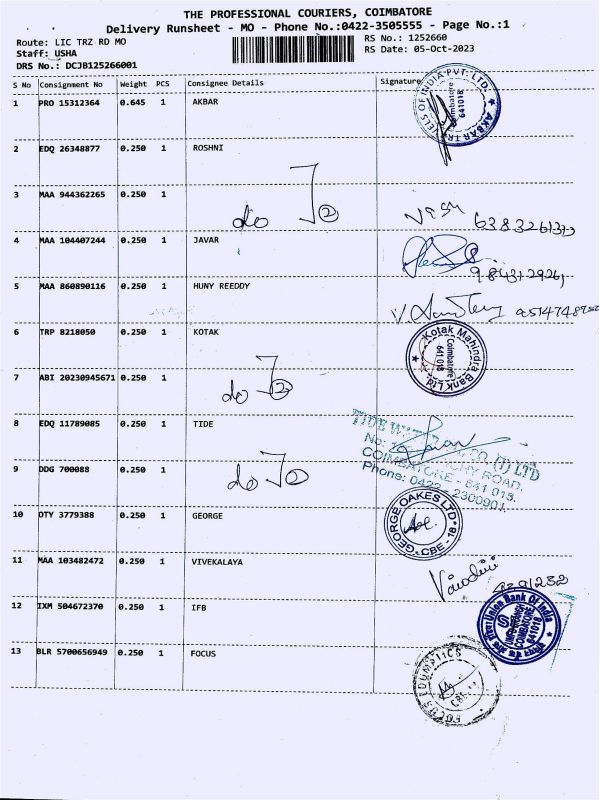 THE PROFESSIONAL COURIERS, COIMBATORE
Delivery Runsheet - MO - Phone No.:0422-3505555 - Page No.:1
Route: LIC TRZ RD MO
RS No.: 1252660
Staff: USHA
RS Date: 05-Oct-2023
DRS No.: DCJB125266001
S No Consignment No Weight PCS Consignee Details Signature
1 PRO 15312364 0.645 1 AKBAR
AKBAR TRAVELS OF INDIA PVT. LTD. Coimbatore 641018
2 EDQ 26348877 0.250 1 ROSHNI
3 MAA 944362265 0.250 1 do
4 MAA 104407244 0.250 1 JAVAR
5 MAA 860890116 0.250 1 HUNY REEDDY
6 TRP 8218050 0.250 1 KOTAK
Kotak Mahindra Bank Ltd. Coimbatore 641 018
7 ABI 20230945671 0.250 1 do
8 EDQ 11789085 0.250 1 TIDE
TIDE CO. (I) LTD
No: ROAD,
COIMBATORE - 641 018.
Phone: 0422 - 2300901
9 DDG 700088 0.250 1 do
10 DTY 3779388 0.250 1 GEORGE
GEORGE OAKES LTD CBE - 18
11 MAA 103482472 0.250 1 VIVEKALAYA
12 IXM 504672370 0.250 1 IFB
Union Bank Of India COIMBATORE 641018
13 BLR 5700656949 0.250 1 FOCUS
FOCUS EDUMATICS CBE